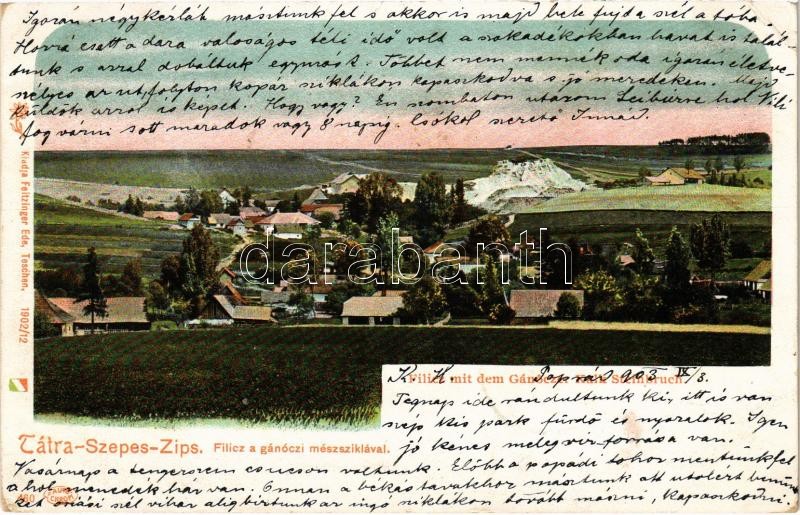 Igazán négykézláb másztunk fel s akkor is majd bele fújta szél a tóba.
Horrá esett a dara valoságos téli idő volt a szakadékokban havat is talál-
tunk s azzal dobáltuk egymást. Többet nem mennék oda igazán életve-
szélyes az ut, folyton kopár sziklákon kapaszkodva s jó meredeken. Majd
küldök arrol is képet. Hogy vagy? Én szombaton utazom hol
fog várni ott maradok vagy 8 napig. Csókol szerető
Kiadja Feitzinger Ede, Teschen. 1902/12
darabanth
Filicz mit dem Gánóczer Kalk Steinbruch.
K. K. Poprád 903 IX/3.
Tegnap ide rándultunk ki, itt is van
szép kis park fürdő és nyaralók. Igen
jó kénes melegvíz forrása van.
Tátra-Szepes-Zips. Filicz a gánóczi mészsziklával.
Vasárnap a tengerszem csucson voltunk. Előbb a poprádi tóhoz mentünk fel
a hol menedék ház van. Onnan a békás tavakhoz másztunk ott utolért benün-
ket óriási szél vihar alig birtunk az ingó sziklákon tovább mászni, kapaszkodni.
460